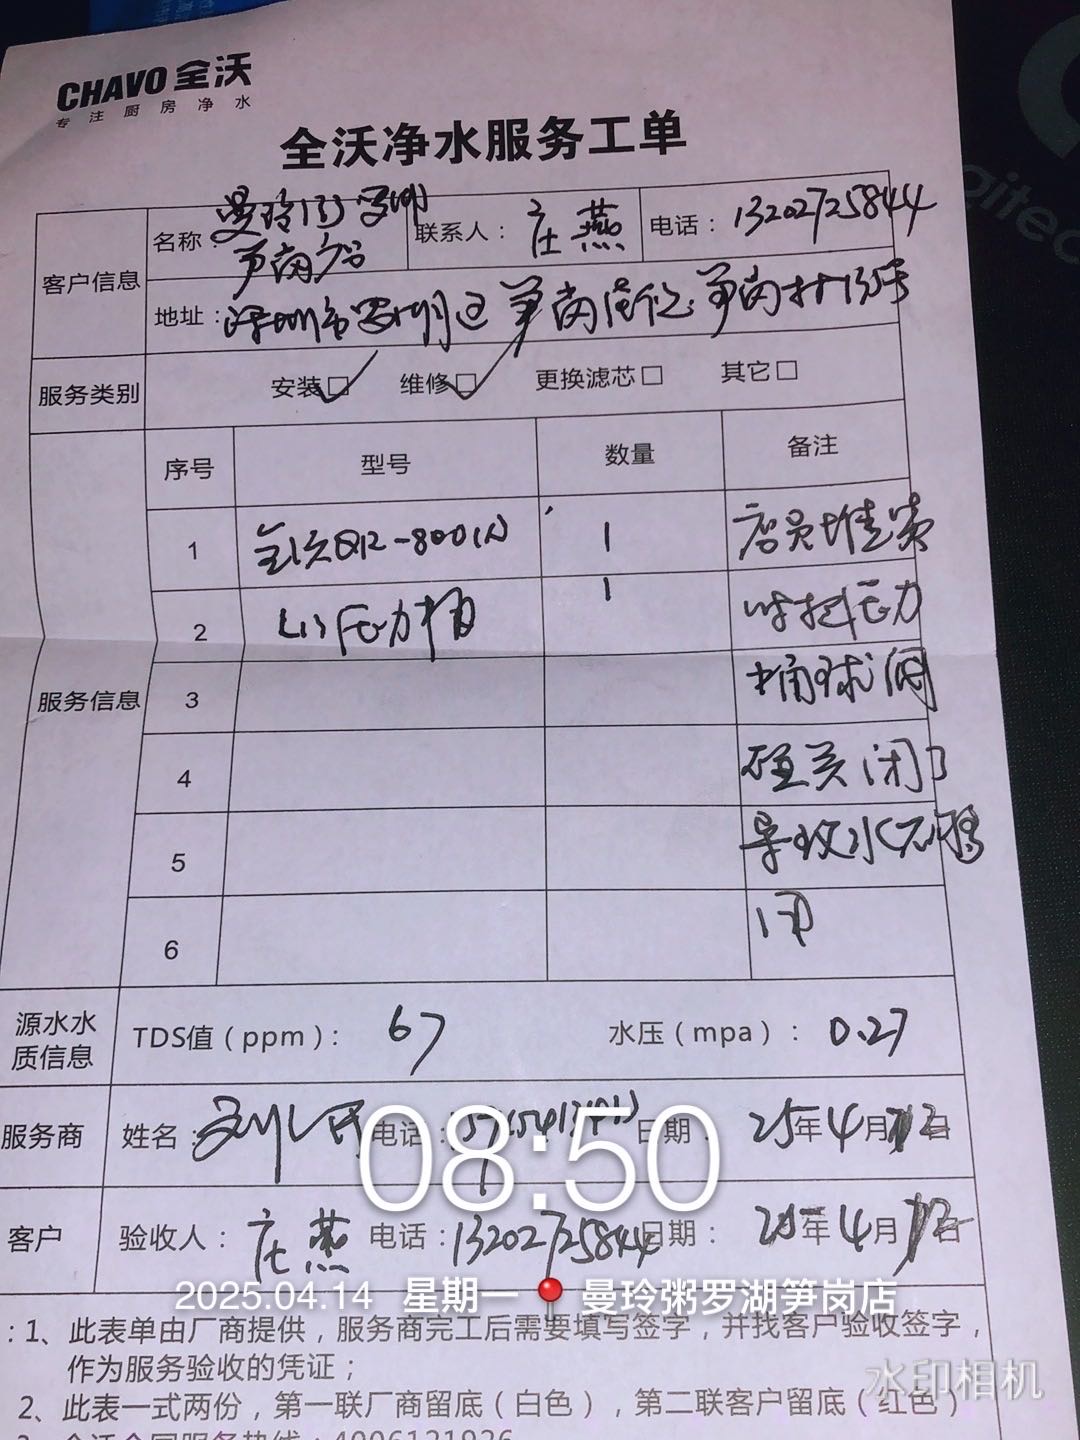 CHAVO 全沃
专注厨房净水
全沃净水服务工单
客户信息
名称：曼玲粥罗湖
笋岗店
联系人：庄燕
电话：13202725844
地址：深圳市罗湖区笋岗街道笋岗村
服务类别
安装☑ 维修☑ 更换滤芯□ 其它□
服务信息
序号 型号 数量 备注
1 全沃Q12-800 1 店员
2 压力桶 1 时把压力
3 桶球阀
4 关闭了
5 导致水不
6
源水水质信息
TDS值（ppm）：67
水压（mpa）：0.27
服务商 姓名： 电话： 日期：25年4月12日
08:50
客户 验收人：庄燕 电话：13202725844 日期：25年4月12日
2025.04.14 星期一 曼玲粥罗湖笋岗店
：1、此表单由厂商提供，服务商完工后需要填写签字，并找客户验收签字，
作为服务验收的凭证；
水印相机
2、此表一式两份，第一联厂商留底（白色），第二联客户留底（红色）